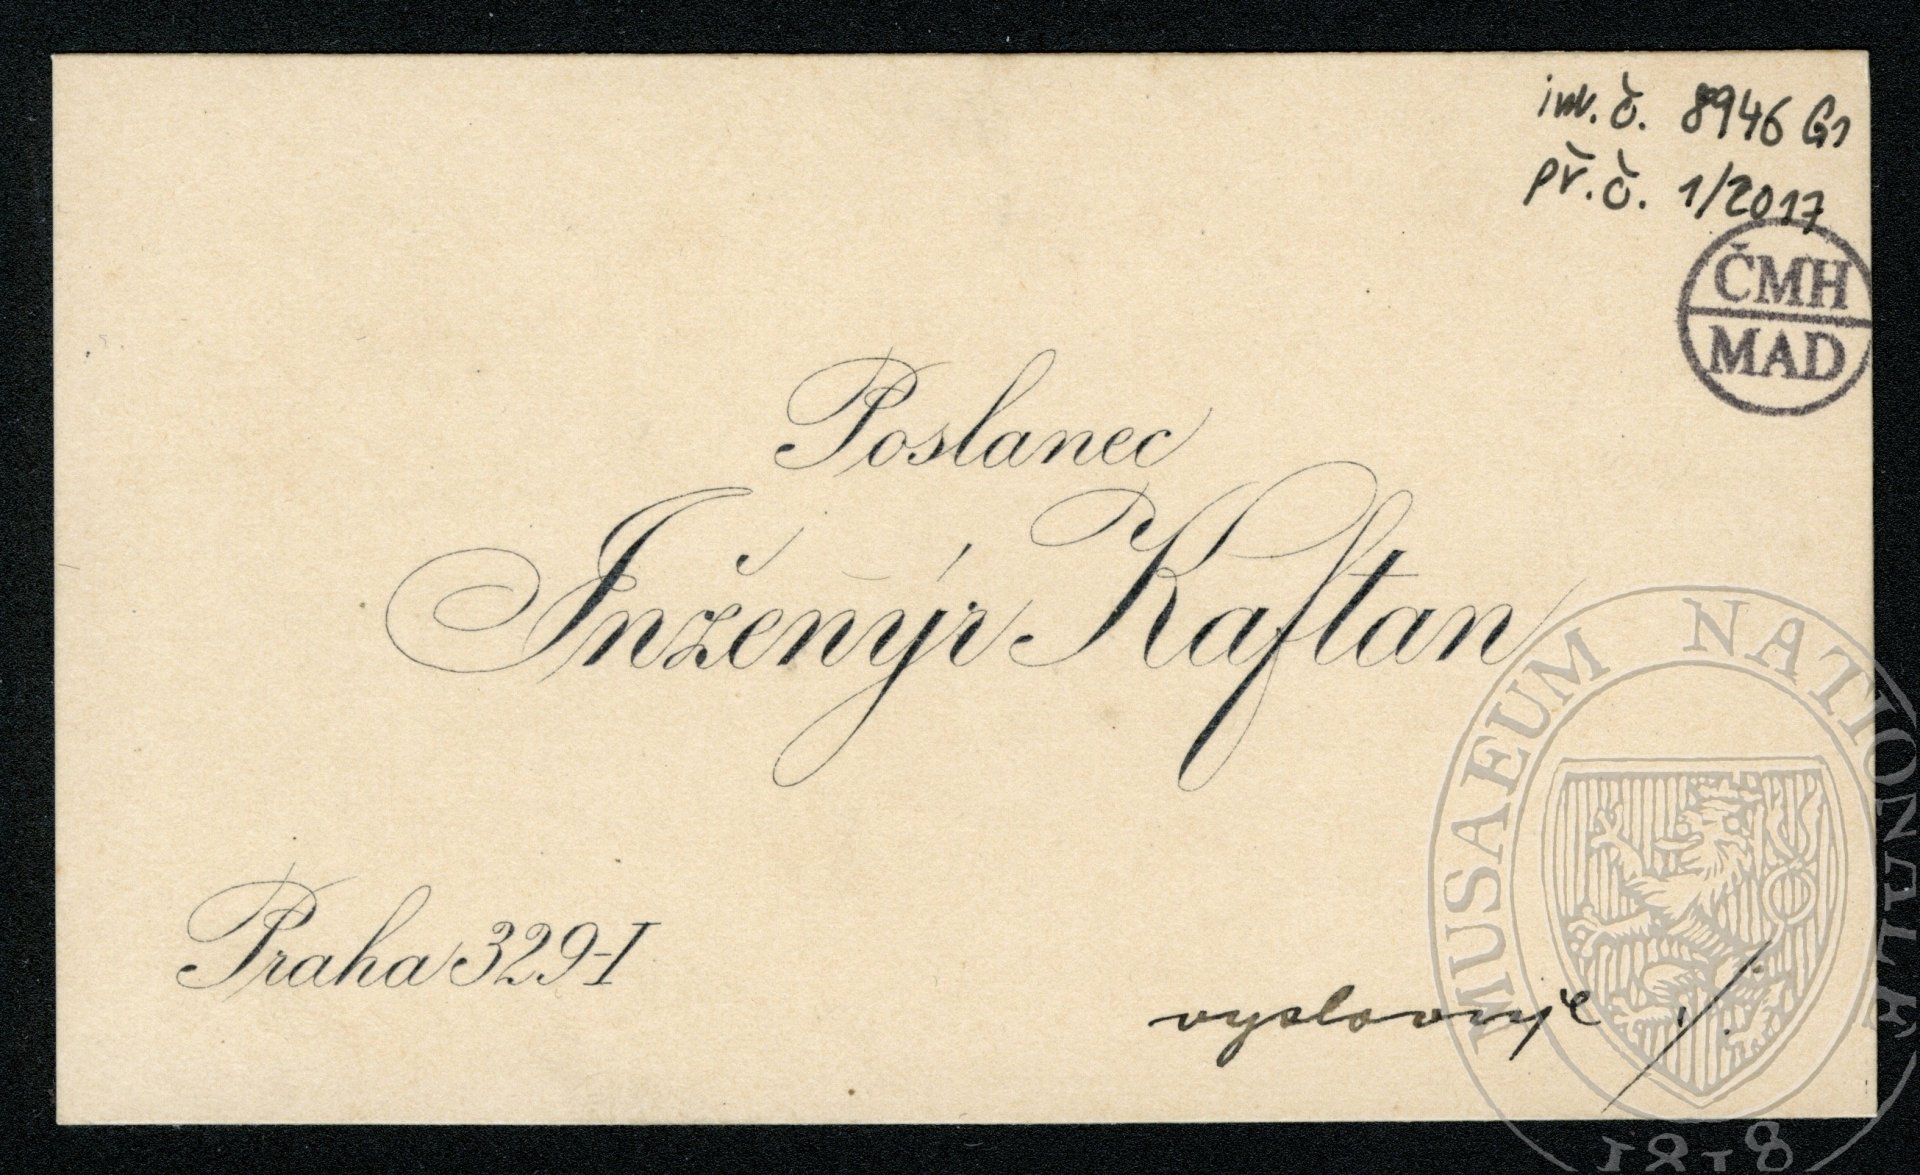 inv. č. 8946 G1
př. č. 1/2017
ČMH
MAD
Poslanec
Inženýr Kaftan
Praha 329-I
vyslovuje ./.
MUSAEUM NATIONALE
1818